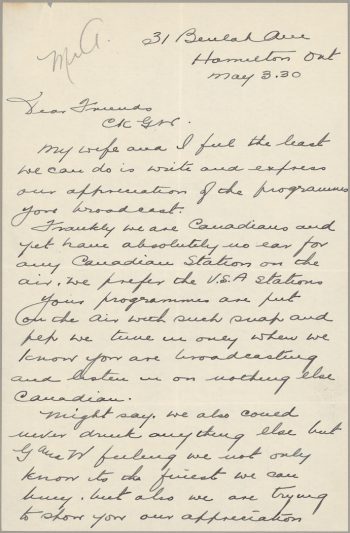 McA.
31 Beulah Ave
Hamilton Ont
May 3.30
Dear Friends
CKGW.
My wife and I feel the least
we can do is write and express
our appreciation of the programmes
your broadcast.
Frankly we are Canadians and
yet have absolutely no ear for
any Canadian Station on the
air. we prefer the U.S.A Stations
Your programmes are put
on the air with such snap and
pep we tune in only when we
know you are broadcasting
and listen in on nothing else
Canadian.
Might say. we also could
never drink anything else but
G and W feeling we not only
know its the finest we can
buy. but also we are trying
to show you our appreciation